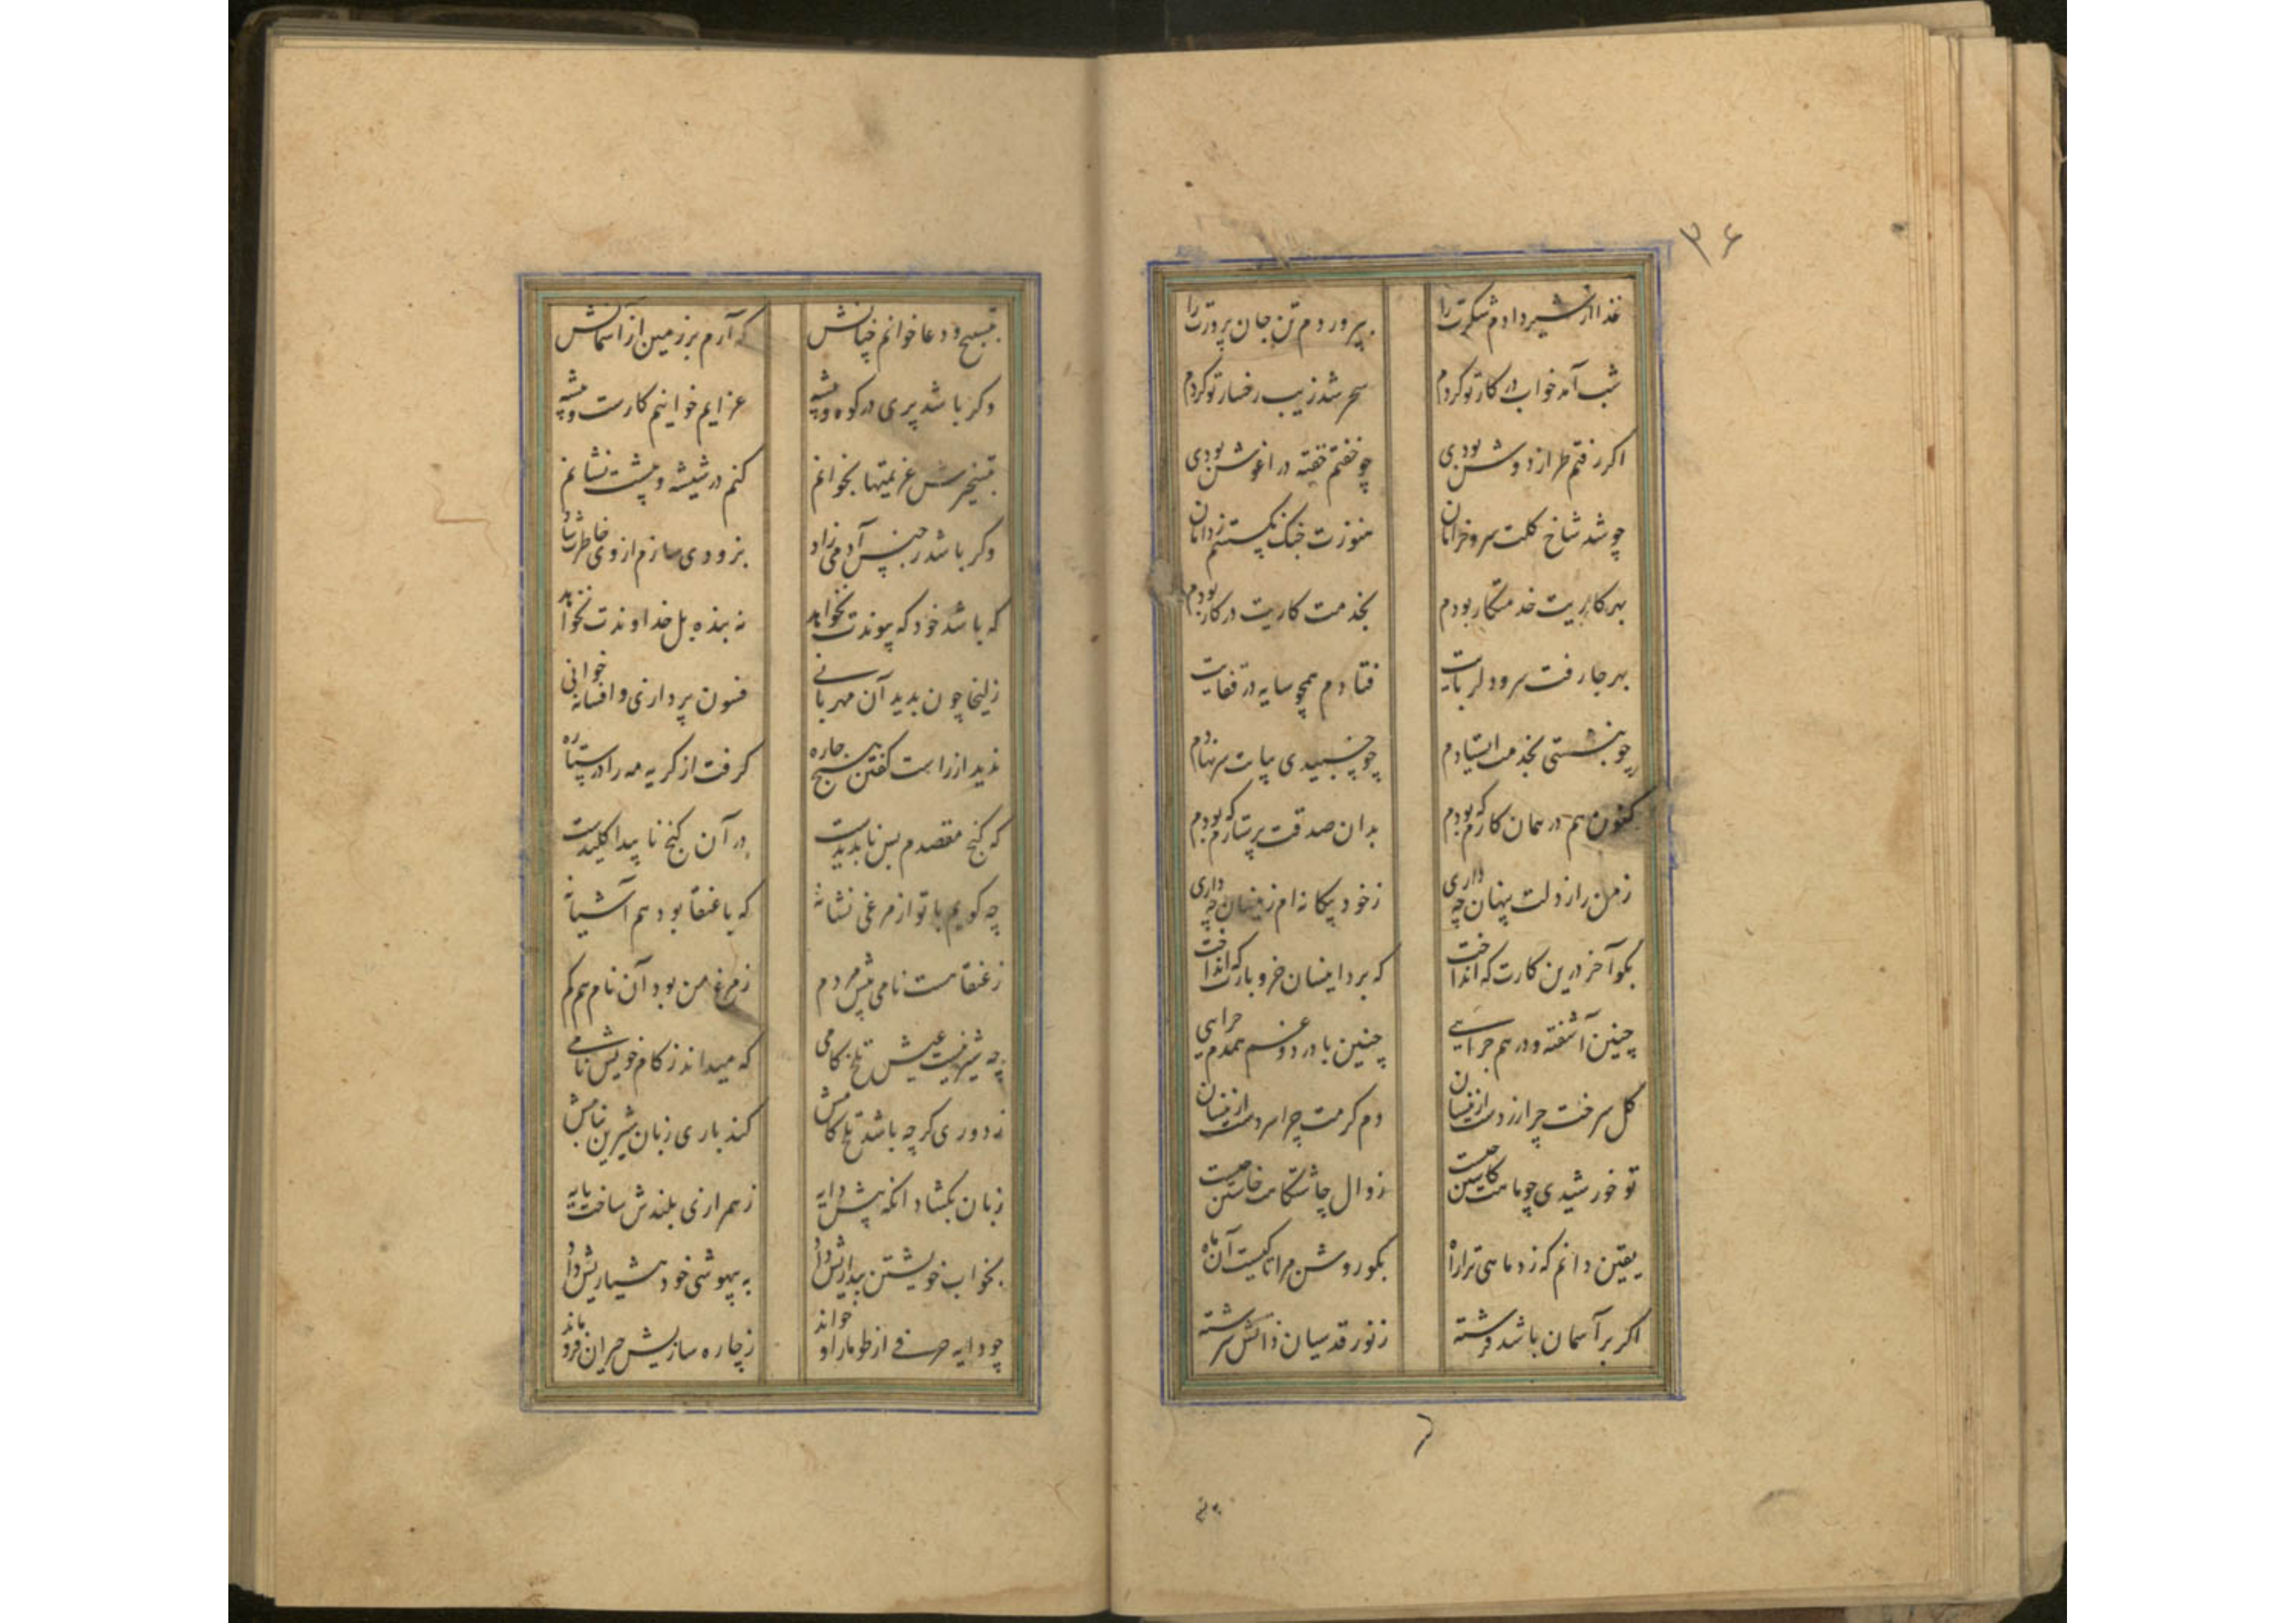 ۳۶
غذا از شیر دادم شکرت را بپروردم تن جان پرورت را
شب آمد خواب در کار تو کردم سحر شد زیب رخسار تو کردم
اکر رفتم طراز دوش بودی چو خفتم خفته در اغوش بودی
چو شد شاخ کلت سرو خرامان هنوزت چنک نکسستم ز دامان
بهر کاریت خدمتکار بودم بخدمت کاریت در کار بودم
بهر جا رفت سرو دلربایت فتادم همچو سایه در قفایت
چو بنشستی بخدمت ایستادم چو خسبیدی بپایت سر نهادم
کنون هم در همان کارم که بودم بدان صدقت پرستارم که بودم
ز من راز دلت پنهان چه داری ز خود بیکانه ام زینسان چه داری
بکو آخر درین کارت که انداخت که برد اینسان خر و بارت که انداخت
چنین آشفته و درهم چرایی چنین با درد و غم همدم چرایی
کل سرخت چرا زردست ازینسان دم کرمت چرا سردست ازینسان
تو خورشیدی چو ماهت کاستن چیست زوال چاشتکاهت خاستن چیست
یقین دانم که زد ماهی ترا راه بکو روشن مرا تا کیست آن ماه
اکر بر آسمان باشد فرشته ز نور قدسیان ذاتش سرشته
بتسبیح و دعا خوانم چنانش که آرم بر زمین از آسمانش
وکر باشد پری در کوه و بیشه عزایم خوانیم کارست و پیشه
بتسخیرش عزیمتها بخوانم کنم در شیشه و پیشت نشانم
وکر باشد ز جنس آدمی زاد بزودی سازم از وی خاطرت شاد
که باشد خود که پیوندت نخواهد نه بنده بل خداوندت نخواهد
زلیخا چون بدید آن مهربانی فسون پردازی و افسانه خوانی
ندید از راست کفتن هیچ چاره کرفت از کریه مه را در ستاره
که کنج مقصدم بس ناپدیدست در آن کنج ناپیدا کلیدست
چه کویم با تو از مرغی نشانه که با عنقا بود هم آشیانه
ز عنقا هست نامی پیش مردم ز مرغ من بود آن نام هم کم
چه شیرینست عیش تلخ کامی که میداند ز کام خویش نامی
ز دوری کرچه باشد تلخ کامش کند باری زبان شیرین ز نامش
زبان بکشاد آنکه پیش دایه ز همرازی بلندش ساخت پایه
بخواب خویشتن بیداریش داد به بیهوشی خود هشیاریش داد
چو دایه حرفی از طومار او خواند ز چاره سازیش حیران فرو ماند